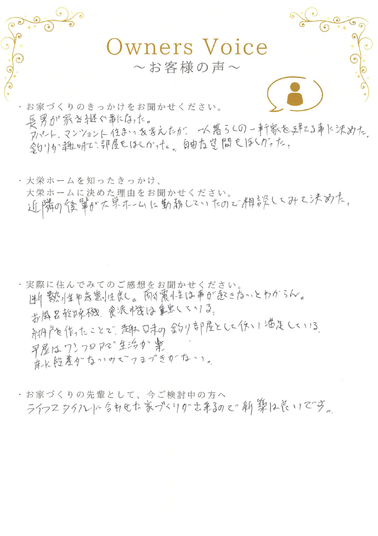 Owners Voice
～お客様の声～
・お家づくりのきっかけをお聞かせください。
長男が家を継ぐ事になった。
アパート、マンション住まいを考えたが、一人暮らしの一軒家を建てる事に決めた。
釣りが趣味で、部屋もほしかった。自由な空間もほしかった。
・大栄ホームを知ったきっかけ、
大栄ホームに決めた理由をお聞かせください。
近隣の後輩が大栄ホームに勤務していたので相談してみて決めた。
・実際に住んでみてのご感想をお聞かせください。
断熱性や気密性良し。耐震性は事が起きないとわからん。
お風呂乾燥機、食洗機は重宝している。
納戸を作ったことで、趣味の釣り部屋として使い満足している。
平屋はワンフロアで生活が楽
床に段差がないのでつまづきがない。
・お家づくりの先輩として、今ご検討中の方へ
ライフスタイルに合わせた家づくりが出来るので新築は良いです。